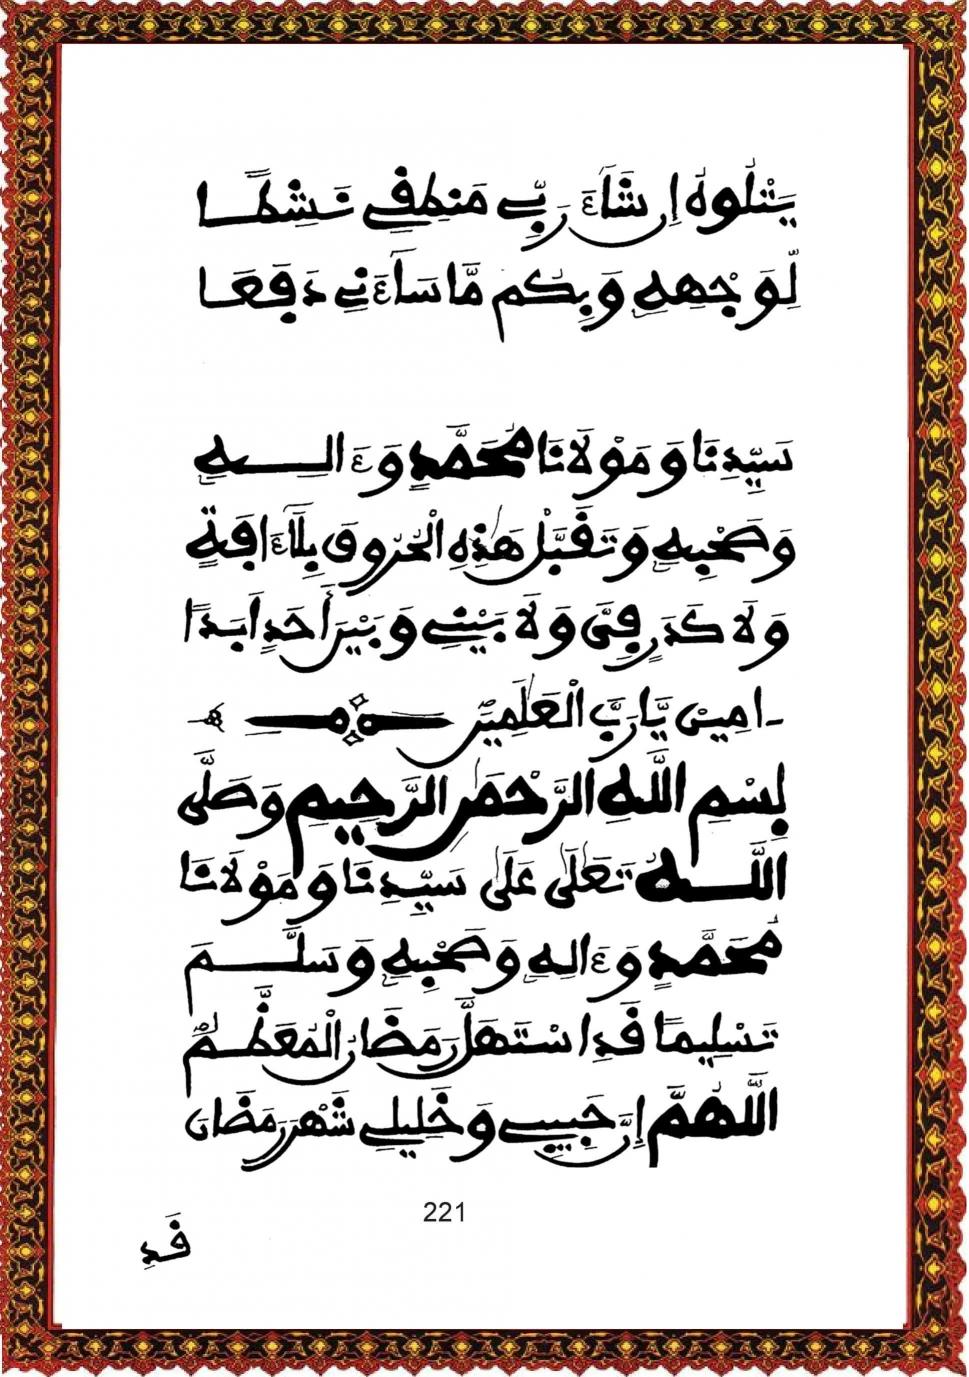 يَتْلُوهُ إِن شَآءَ رَبِّي مَنطِقِي نَشِطًا
لِّوَجْهِهِ وَبِكُم مَّا سَآءَنِي دَفَعَا
سَيِّدِنَا وَمَوْلَانَا مُحَمَّدٍ وَءَالِهِ
وَصَحْبِهِ وَتَقَبَّلْ هَٰذِهِ الْحُرُوفَ بِلَآ ءَافَةٍ
وَلَا كَدَرٍ فِيَّ وَلَا بَيْنِي وَبَيْنَ أَحَدٍ أَبَدًا
ءَامِينَ يَا رَبَّ الْعَٰلَمِينَ هـ
بِسْمِ اللَّهِ الرَّحْمَٰنِ الرَّحِيمِ وَصَلَّى
اللَّهُ تَعَٰلَى عَلَى سَيِّدِنَا وَمَوْلَانَا
مُحَمَّدٍ وَءَالِهِ وَصَحْبِهِ وَسَلَّمَ
تَسْلِيمًا قَدِ اسْتَهَلَّ رَمَضَانُ الْمُعَظَّمُ
اللَّهُمَّ إِنَّ حَبِيبِي وَخَلِيلِي شَهْرَ رَمَضَانَ
221
قَدِ